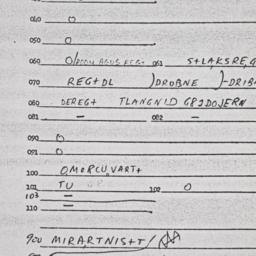 040 O
050 O
060 061 S+LAKSRE,G
070 REG+DL )DROBNE )-DRIB
080 DEREG+ TLANGNID G82DOJERN
081 – 082 –
090 O
091 O
100 OMORCU,VART+
101 TU 102 O
103 –
110 –
900 MIRARTNIS+T/